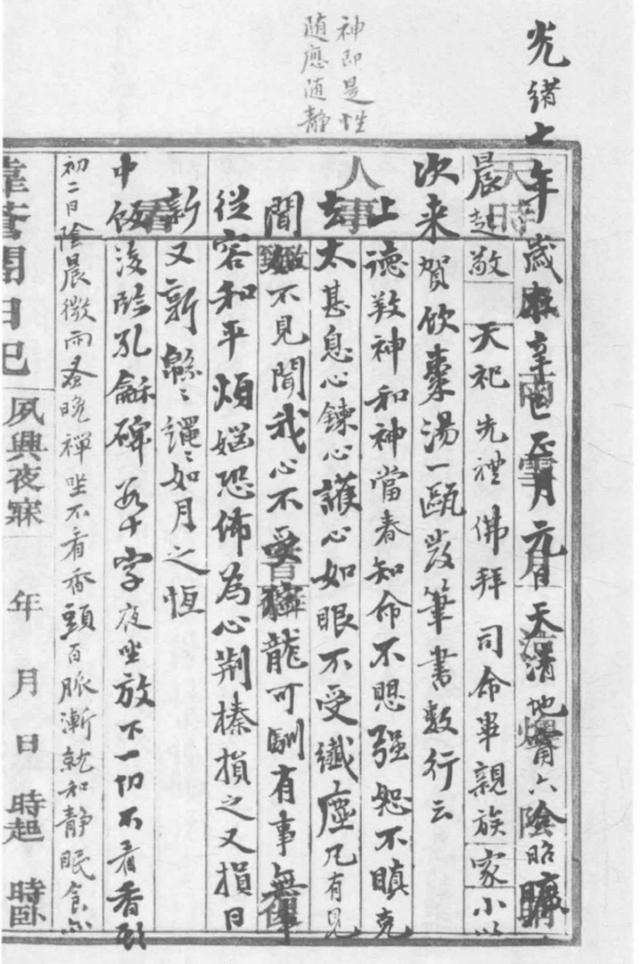 神即是性
随應随静
光緒七年歲在辛巳正月元日天清地寧六陰昭曠
晨起敬天祀先禮佛拜司命畢親族家小以
次来賀飲棗湯一甌發筆書數行云
上德敦神和神當春知命不愠强恕不瞋克
去太甚息心鍊心護心如眼不受纖塵凡有見
聞如不見聞我心不受獰龍可馴有事無事
從容和平煩惱恐怖為心荆榛損之又損日
新又新緜緜繩繩如月之恆
中飯後臨孔龢碑若干字夜坐放下一切不看香頭
初二日陰晨微雨蚤晚禪坐不看香頭百脈漸就和静眠食亦
日記
夙興夜寐 年 月 日 時起 時卧